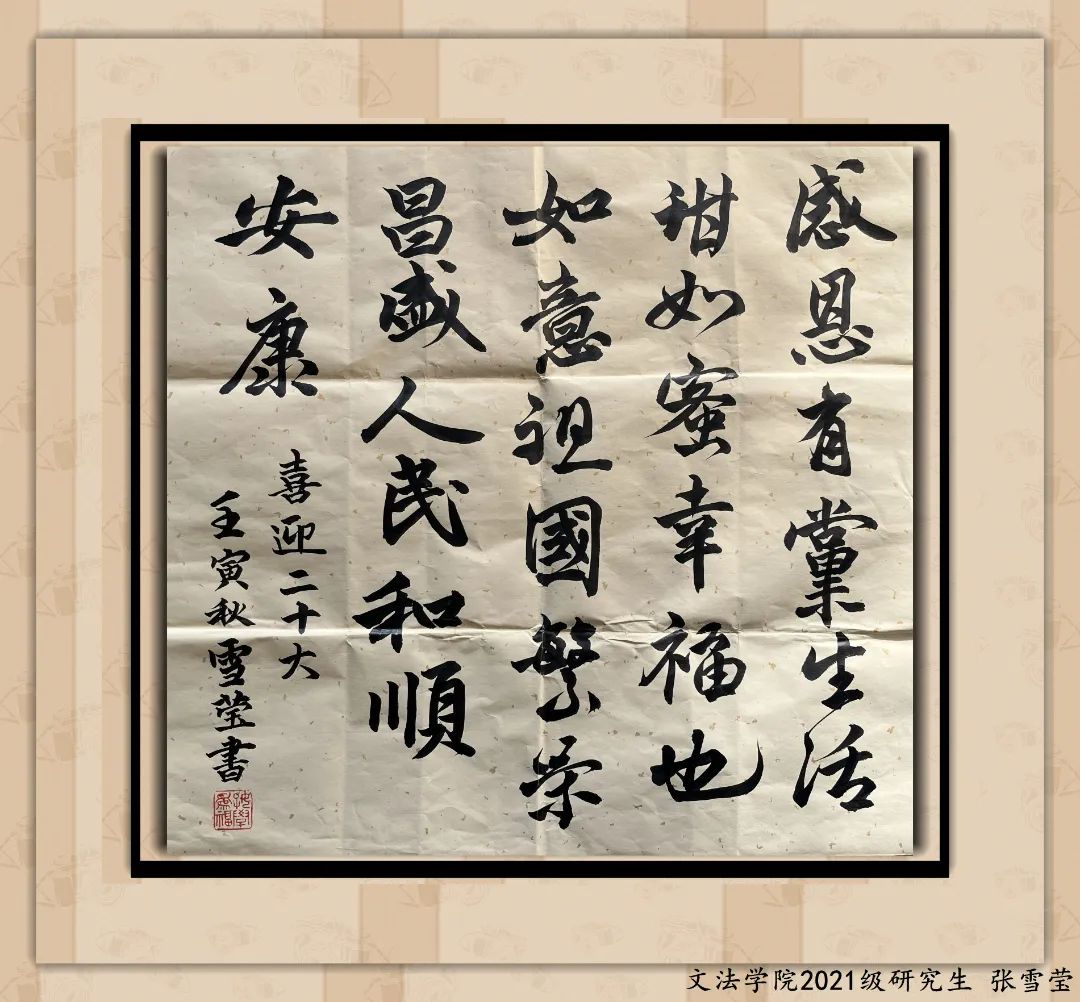 感恩有黨生活
甜如蜜幸福也
如意祖國繁荣
昌盛人民和順
安康
喜迎二十大
壬寅秋雪莹書
文法学院2021级研究生 张雪莹